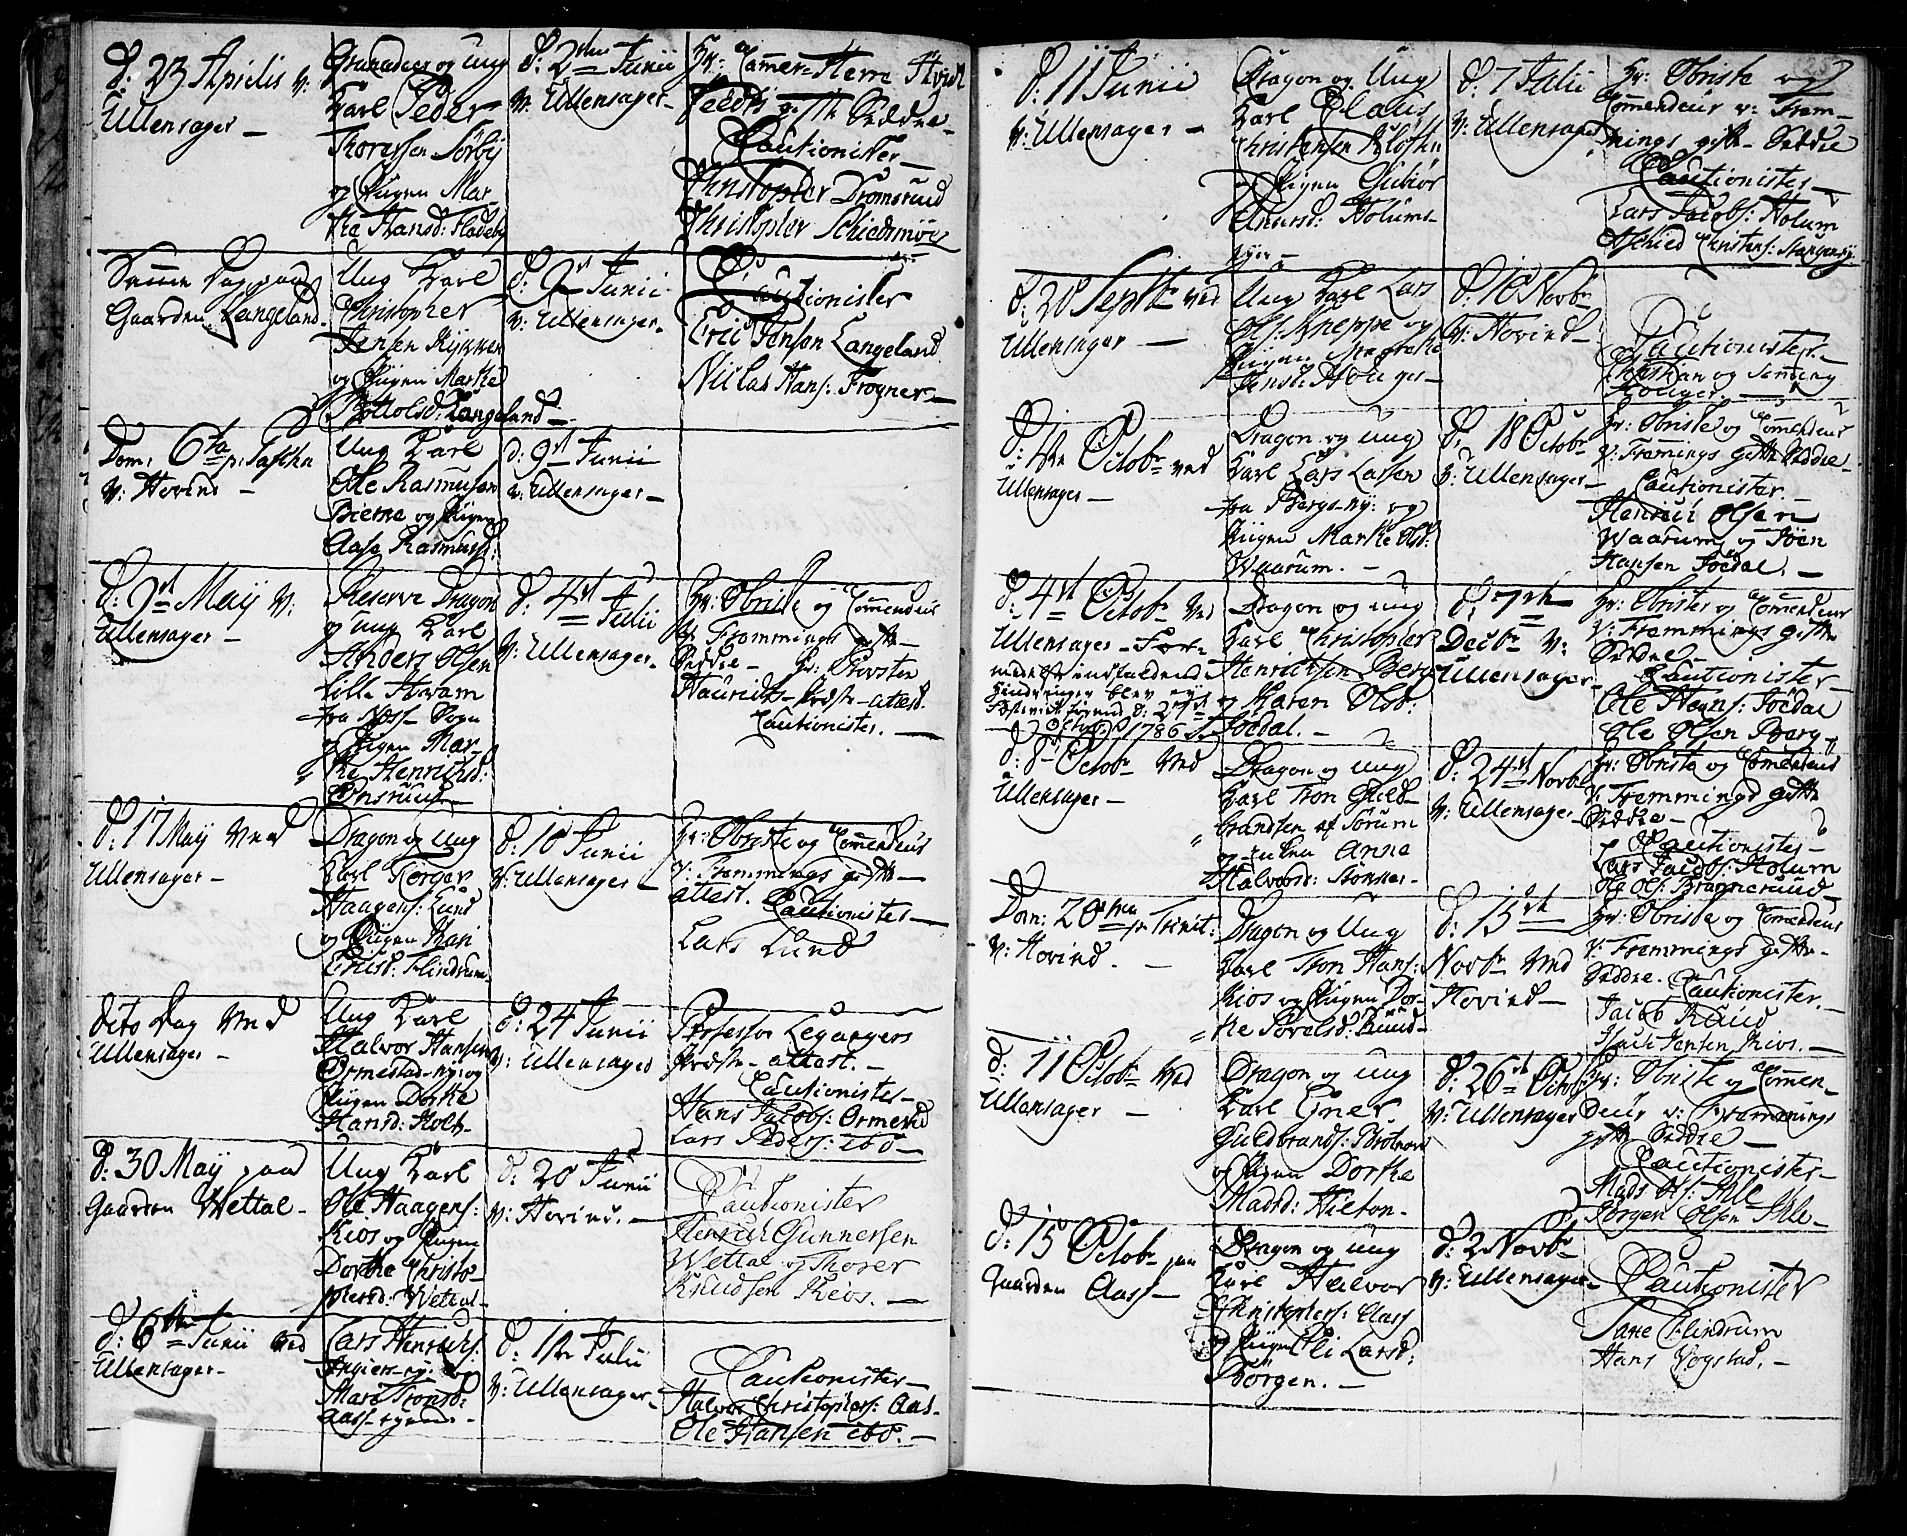 d: 23 Aprilis v:
Ullensager —
Granadeer og Ung
Karl Peder
Thoressen Sörby
og Pigen Mar-
the Hansd: Fladeby
d: 2den Junii
v: Ullensager —
Hr: Camer-Herre
Seddie —
Cautionister —
Christopher Dromsrud
Christopher Schiedsmoe
Samme Dag paa
Gaarden Langeland —
Ung Karl
Christopher
Jensen Rykken
og Pigen Marthe
Bottolsd: Langeland —
d: 9st Junii
v: Ullensager —
Cautionister
Eric Jensen Langeland
Niclas Hans: Frogner —
Dom: 6ta p: Pascha
v: Hovind —
Ung Karl
Ole Rasmusen
Bierne og Pigen
Aase Rasmusd:
d: 9st Junii
v: Ullensager —
d: 9st Maij v:
Ullensager —
Reserve Dragon
og ung Karl
Anders Olsen
Lille Horam
fra Næss Sogn
og Pigen Mar-
the Henrichsd:
d: 4st Julii
v: Ullensager —
Hr: Obriste og Commendeur
v: Frommings
Seddie — Hr: Provsten
attest.
Cautionister. —
d: 17 Maij ved
Ullensager —
Dragon og Ung
Karl Törger
Haagens: Lund
og Pigen Kari
Flindrum
d: 10 Junii
v: Ullensager —
Hr: Obriste og Commendeur
v: Frommings
attest.
Cautionister —
Lars Lund
dito Dag ved
Ullensager —
Ung Karl
Halvor Hansen
Ormestad-ny: og
Pigen Dorthe
Hansd: Holt —
d: 24 Junii
v: Ullensager
Professor Leganger
attest. —
Cautionister —
Hans Jacobs: Ormestad
Lars Peders: ibd —
d: 30 Maij paa
Gaarden Wettal —
Ung Karl
Ole Haagens:
Kios og Pigen
Dorthe Christo-
phersd: Wettal —
d: 20 Junii
v: Hovind. —
Cautionister
Henrich Gunnersen
Wettal og Thorer
Knudsen Kios. —
d: 6te Junii ved
Ullensager —
Lars Henrichs:
og
Mari Tronsd:
d: 1ste Julii
v: Ullensager —
Cautionister —
Halvor Christophers: Aas —
Ole Hansen ibd. —
d: 11 Junii
v: Ullensager —
Dragon og Ung
Karl Claus
Christensen Kløfthe
og Pigen Gubiør
Holums-
d: 7 Julii
v: Ullensager
Hr: Obriste og
Commendeur v: From-
mings Seddie
Cautionister —
Lars Jacobs: Holum
d: 20 Septbr ved
Ullensager —
Ung Karl Lars
Ols: Kneppe og
Pigen
Jensd: Houger —
d: 10 Novbr
v: Hovind —
Cautionister —
Christian og
Houger. —
d: 1ste Octobr ved
Ullensager —
Dragon og ung
Karl Lars Larsen
fra Bergs-ny: og
Pigen Marthe Olsd:
Waarum. —
d: 18 Octobr
v: Ullensager —
Hr: Obriste og Commendeur
v: Frommings Seddie —
Cautionister. —
Henrich Olsen
Waarum og Jöen
Hansen Jöedal. —
d: 4st Octobr ved
Ullensager — For-
1786
Dragon og ung
Karl Christopher
Henrichsen Berg
og Maren Olsd:
Jöedal. —
d: 7de
Decbr v:
Ullensager —
Hr: Obrister og Commendeur
v: Frommings
Seddie —
Cautionister —
Ole Hans: Jöedal
Ole Olsen Berg
d: 8 Octobr ved
Ullensager —
Dragon og ung
Karl Tron Guld-
brandsen af Sorum
og Anne
Halvorsd:
d: 24st Novbr
v: Ullensager —
Hr: Obriste og Commendeur
v: Frommings
Seddie —
Cautionister —
Lars Jacobs: Holum
Ole Ols: Brannerud
Dom: 20ma p: Trinit:
v: Hovind. —
Dragon og Ung
Karl Tron Hans:
Kios og Pigen Dor-
the Povelsd: Rüud —
d: 15de
Novbr ved
Hovind —
Hr: Obriste og Commendeur
v: Frommings
Seddie. Cautionister. —
Jacob Raud
Jensen Kios. —
d: 11 Octobr ved
Ullensager —
Dragon og ung
Karl Einer
Guldbrands:
og Pigen Dorthe
Madsd: Hilton —
d: 26st Octobr
v: Ullensager
Hr: Obriste og Commen-
deur v: Frommings
Seddie —
Cautionister —
Mads Ols: Ihle
Jörgen Olsen Ihle —
d: 15 Octobr paa
Gaarden Aass —
Dragon og ung
Karl Halvor
Christophers: Aass
og Pigen Eli Larsd:
Börgen. —
d: 2 Novbr
v: Ullensager —
Cautionister
Tore Flindrum
Hans Vogstad. —